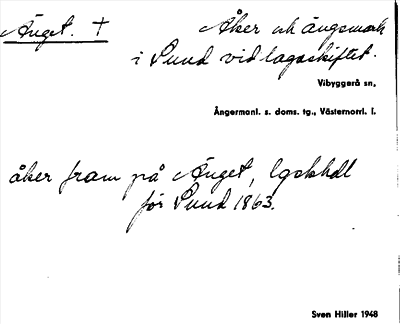 Änget. †
Åker och ängsmark
i Sund vid lagaskiftet.
Vibyggerå sn,
Ångermanl. s. doms. tg., Västernorrl. l.
åker fram på Änget, lgskhdl
för Sund 1863.
Sven Hiller 1948